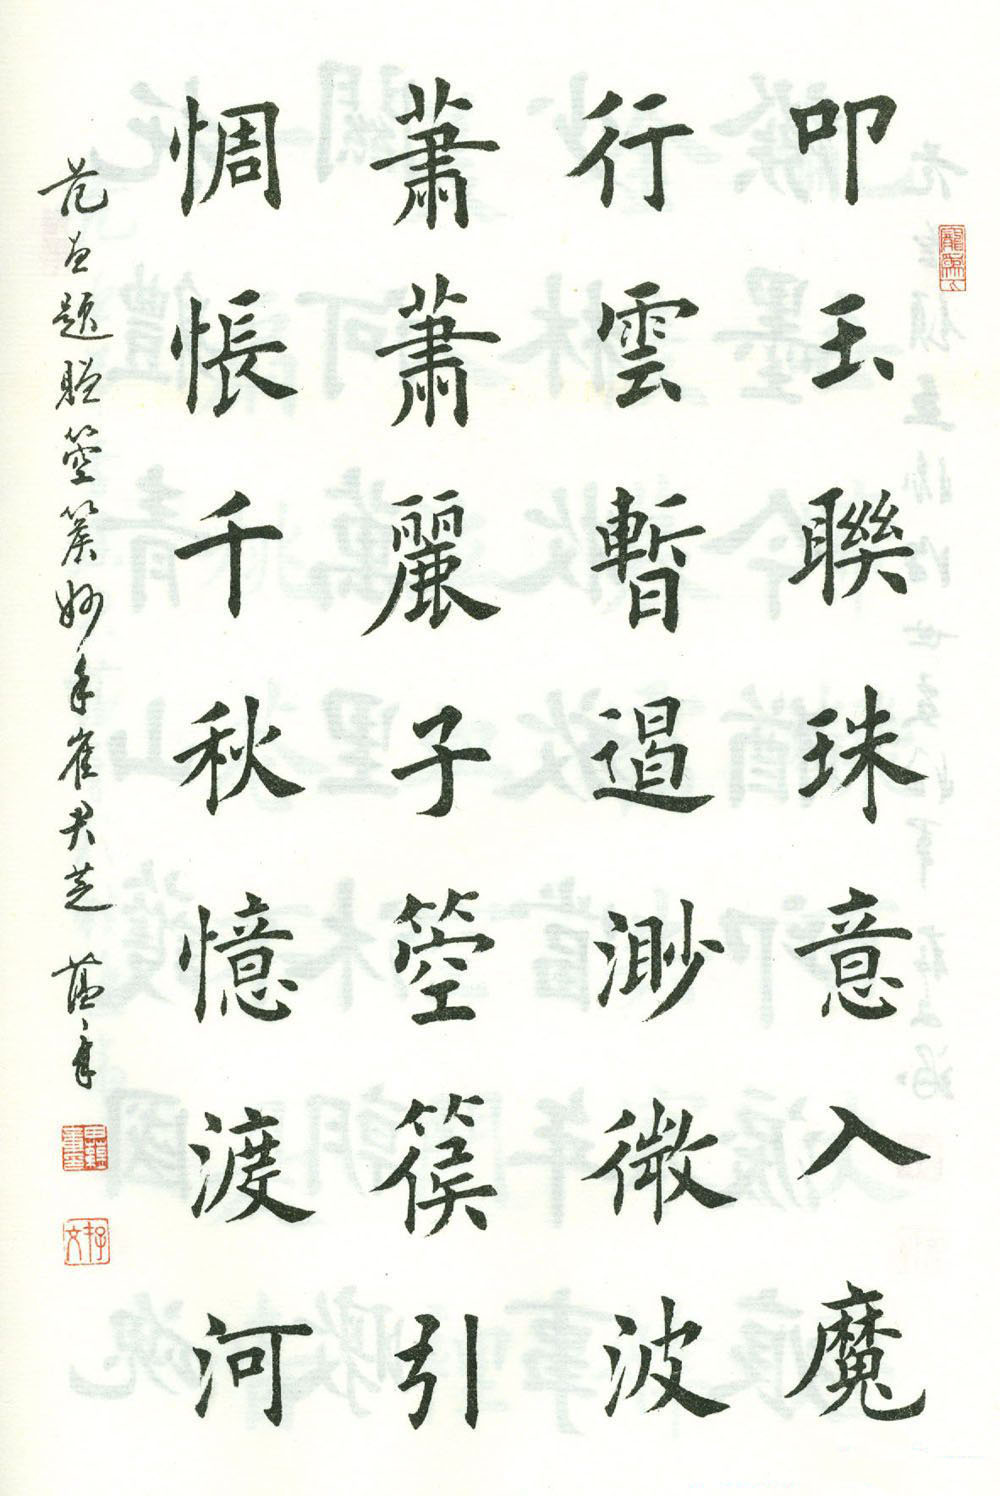 叩玉聯珠意入魔
行雲暫遏渺微波
蕭蕭麗子箜篌引
惆悵千秋憶渡河
范曾題贈箜篌妙手崔君芝